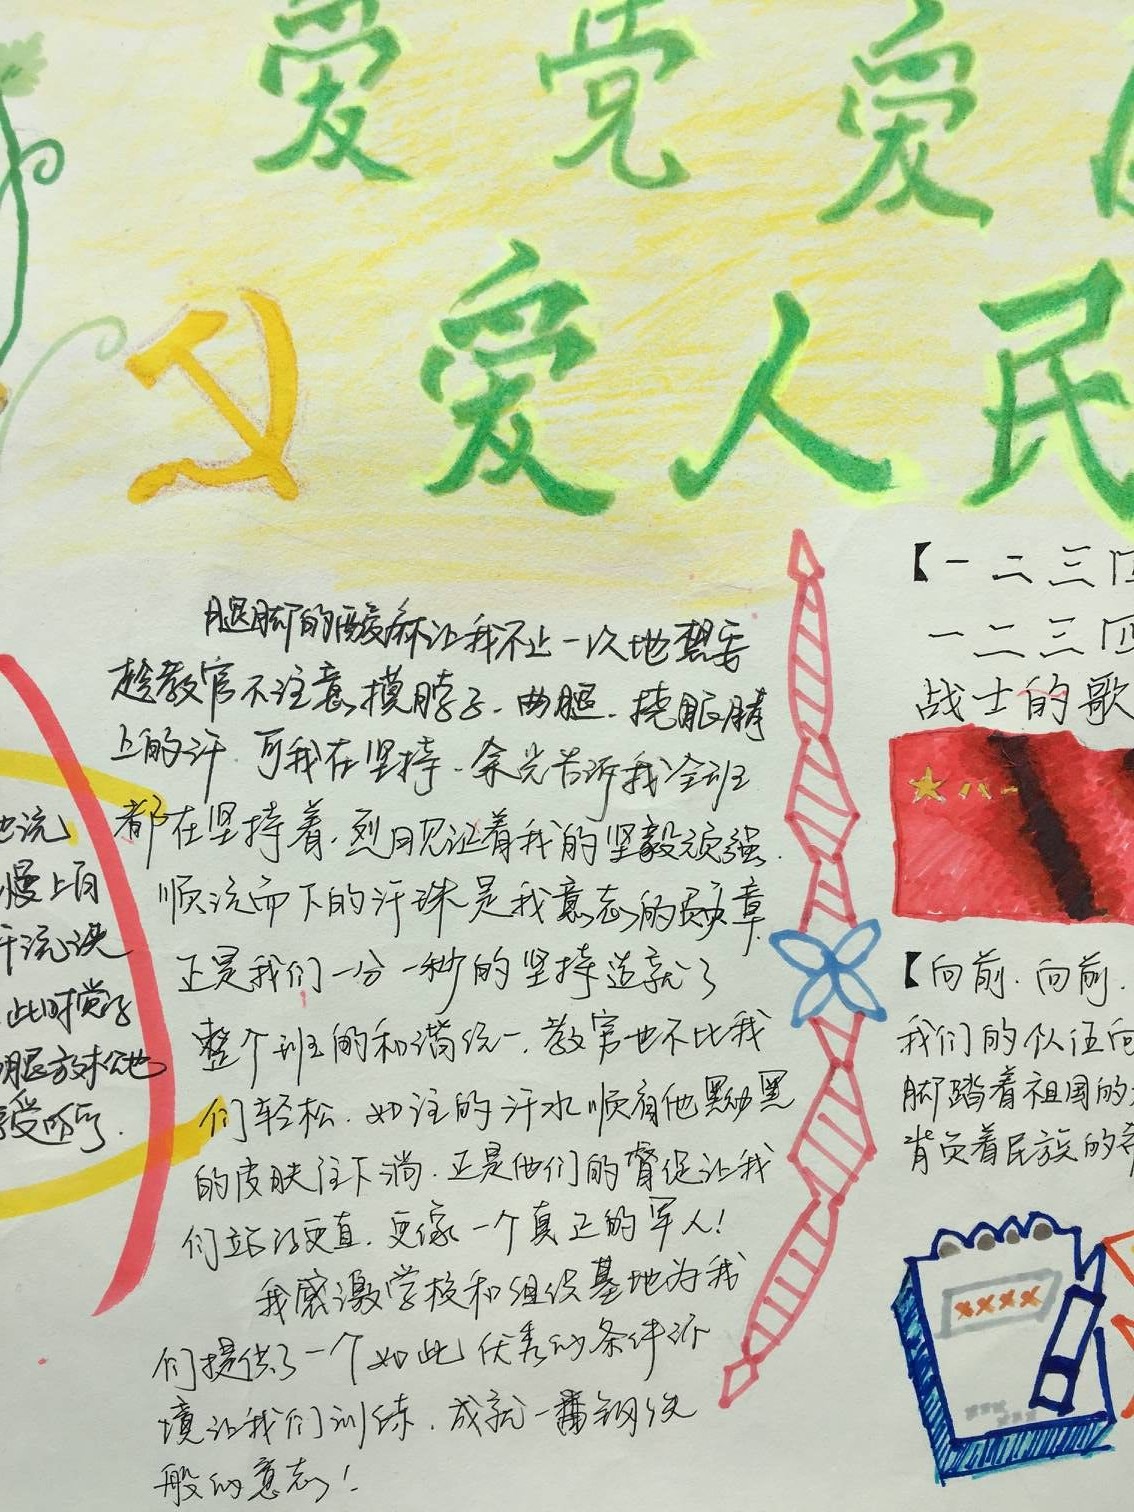 爱党爱
爱人民
腿脚的酸麻让我不止一次地想要
趁教官不注意,摸脖子、曲腿、挠眼睛
上的汗,可我在坚持,余光告诉我全班
都在坚持着,烈日见证着我的坚毅顽强.
顺流而下的汗珠是我意志的勋章
正是我们一分一秒的坚持造就了
整个班的和谐统一,教官也不比我
们轻松,如注的汗水顺着他黝黑
的皮肤往下淌,正是他们的督促让我
们站得更直,更像一个真正的军人!
我感激学校和组织基地为我
们提供了一个如此优秀的条件
境让我们训练,成就一番钢铁
般的意志!
流
慢上
汗流浃
此时
腿放松地
受
【一二三四
一二三四
战士的歌
八一
【向前,向前,
我们的队伍向
脚踏着祖国的
背负着民族的
××××
×××
×××